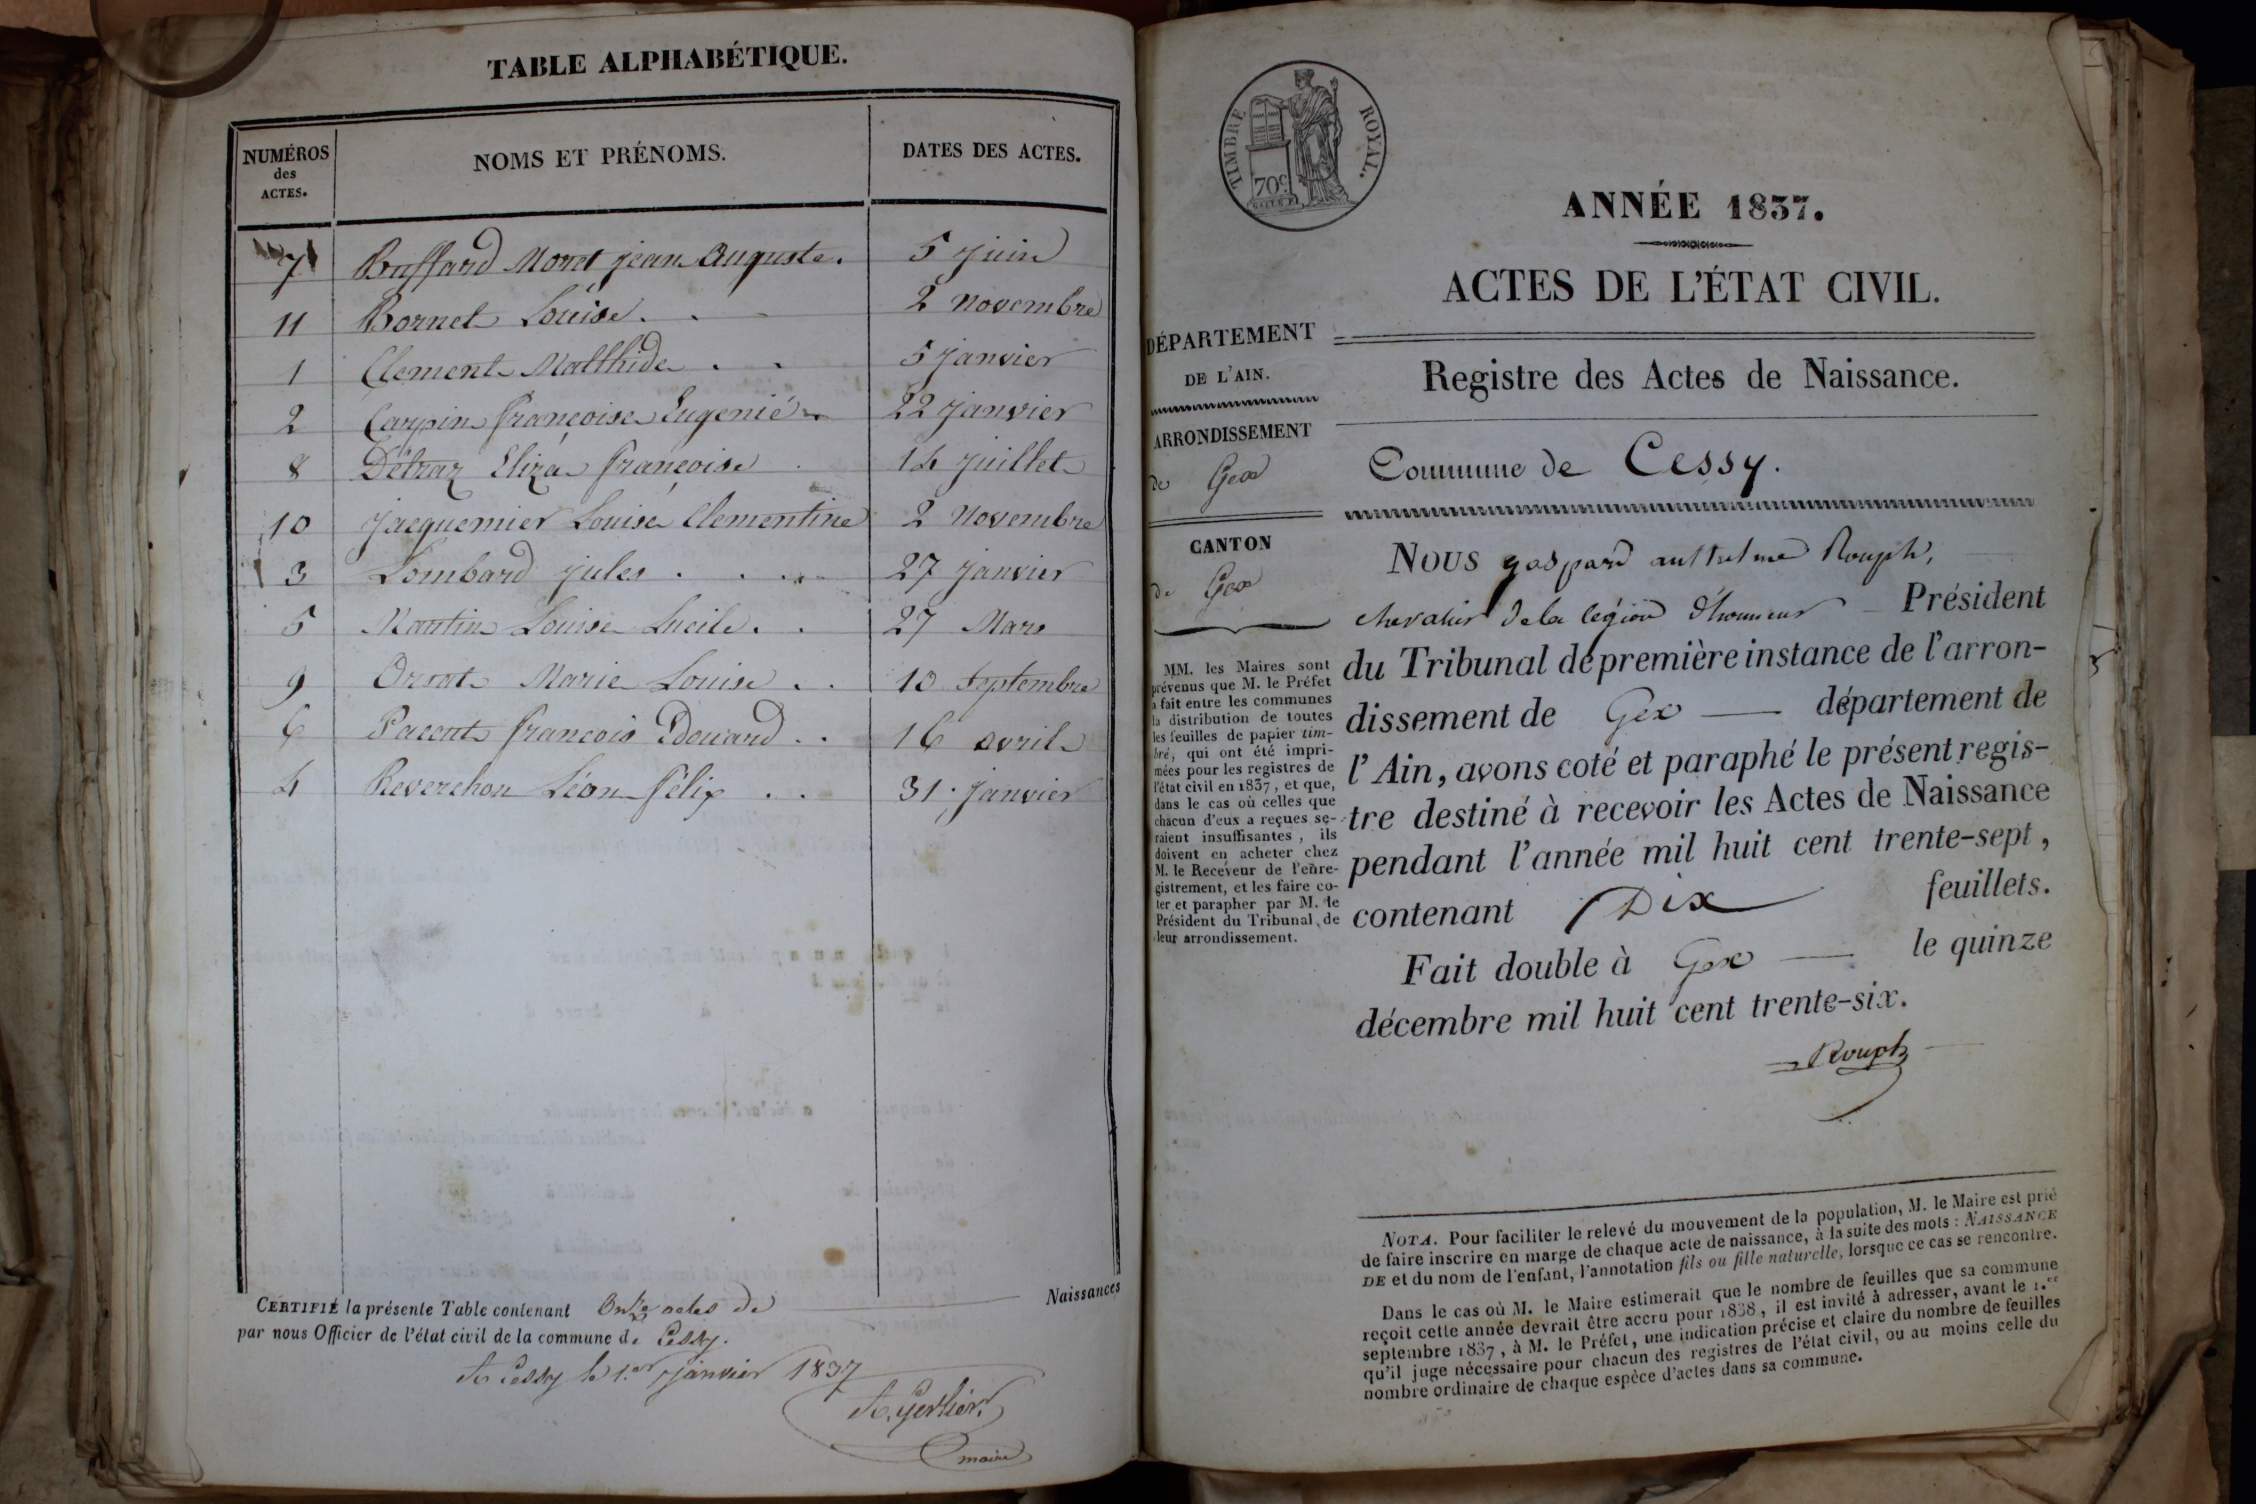 TABLE ALPHABÉTIQUE.
NUMÉROS des ACTES. NOMS ET PRÉNOMS. DATES DES ACTES.
7 Buffard Moret jean Auguste. 5 juin
11 Bornet Louise. . 2 Novembre
1 Clement Malthide . . 5 janvier
2 Carpin françoise Eugenié 22 janvier
8 Détraz Eliza françoise . 14 juillet
10 jacquemier Louise Clementine 2 Novembre
3 Lombard jules . . . 27 janvier
5 Mantin Louise Lucile. . 27 Mars
9 Orsat Marie Louise . . 10 Septembre
6 Pacent françois Edouard . . 16 avril
4 Reverchon Léon félix . . 31. janvier
CERTIFIÉ la présente Table contenant Onze actes de Naissances
par nous Officier de l'état civil de la commune de Cessy.
A Cessy le 1.er janvier 1837
A. Gerlier.
maire
TIMBRE ROYAL.
70c
ANNÉE 1837.
ACTES DE L'ÉTAT CIVIL.
DÉPARTEMENT
DE L'AIN.
ARRONDISSEMENT
de Gex
CANTON
de Gex
MM. les Maires sont
prévenus que M. le Préfet
a fait entre les communes
la distribution de toutes
les feuilles de papier tim-
bré, qui ont été impri-
mées pour les registres de
l'état civil en 1837, et que,
dans le cas où celles que
chacun d'eux a reçues se-
raient insuffisantes, ils
doivent en acheter chez
M. le Receveur de l'enre-
gistrement, et les faire co-
ter et parapher par M. le
Président du Tribunal de
leur arrondissement.
Registre des Actes de Naissance.
Commune de Cessy.
NOUS gaspard anthelme Rouph,
chevalier de la légion d'honneur Président
du Tribunal de première instance de l'arron-
dissement de Gex département de
l'Ain, avons coté et paraphé le présent regis-
tre destiné à recevoir les Actes de Naissance
pendant l'année mil huit cent trente-sept,
contenant Dix feuillets.
Fait double à Gex le quinze
décembre mil huit cent trente-six.
Rouph
NOTA. Pour faciliter le relevé du mouvement de la population, M. le Maire est prié
de faire inscrire en marge de chaque acte de naissance, à la suite des mots : NAISSANCE
DE et du nom de l'enfant, l'annotation fils ou fille naturelle, lorsque ce cas se rencontre.
Dans le cas où M. le Maire estimerait que le nombre de feuilles que sa commune
reçoit cette année devrait être accru pour 1838, il est invité à adresser, avant le 1.er
septembre 1837, à M. le Préfet, une indication précise et claire du nombre de feuilles
qu'il juge nécessaire pour chacun des registres de l'état civil, ou au moins celle du
nombre ordinaire de chaque espèce d'actes dans sa commune.